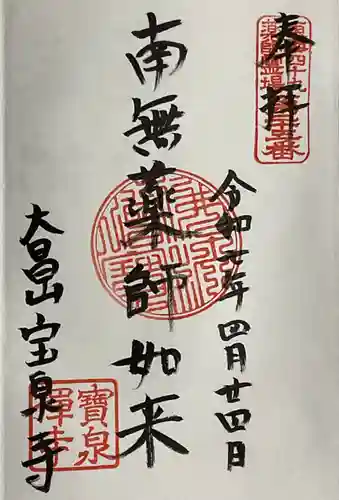 奉拝
南無薬師如来
令和七年四月廿四日
大昌山宝泉寺
寶泉